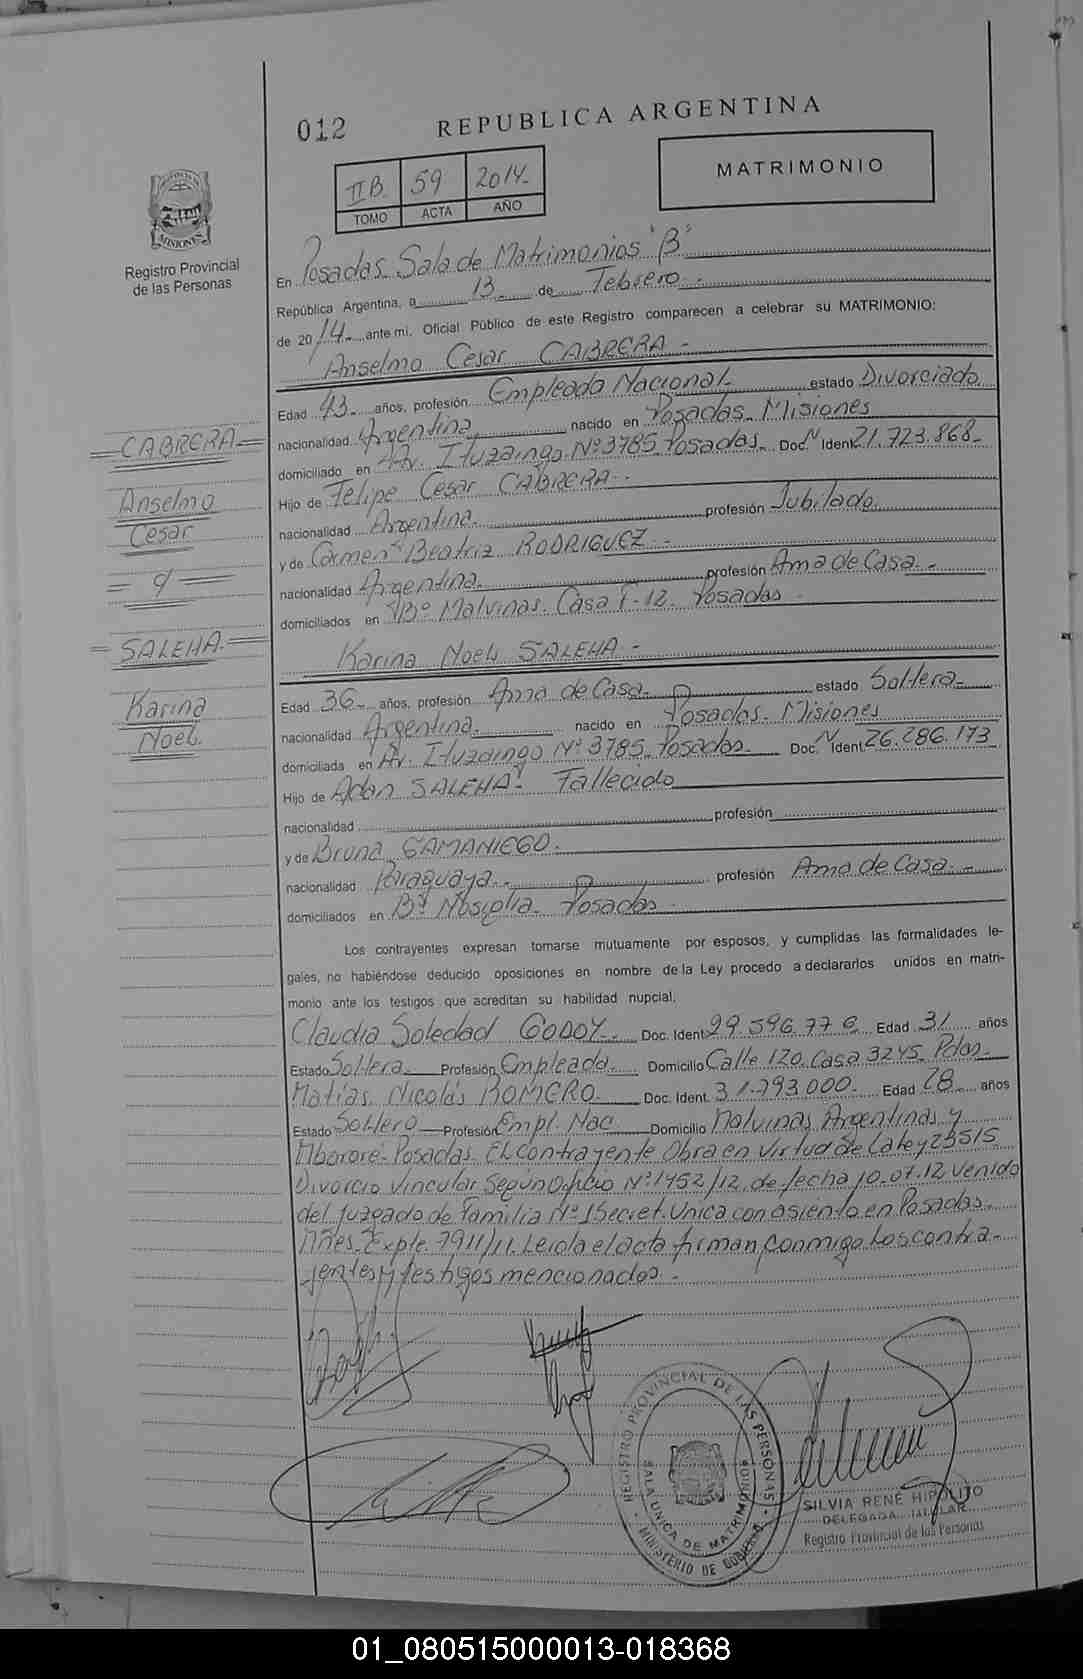 012 REPUBLICA ARGENTINA
MATRIMONIO
II B. 59 2014.-
TOMO ACTA AÑO
MISIONES
Registro Provincial
de las Personas
En Posadas. Sala de Matrimonios "B"
República Argentina, a 13 de Febrero.-
de 2014.- ante mi. Oficial Público de este Registro comparecen a celebrar su MATRIMONIO:
Anselmo Cesar CABRERA.-
Edad 43.- años, profesión Empleado Nacional.- estado Divorciado
nacionalidad Argentina. nacido en Posadas. Misiones
domiciliado en Av. Ituzaingo. Nº 3785 Posadas.- Doc. N Ident. 21.723.868.-
Hijo de Felipe Cesar CABRERA.-
nacionalidad Argentina. profesión Jubilado.
y de Carmen Beatriz RODRIGUEZ.-
nacionalidad Argentina. profesión Ama de Casa.-
domiciliados en Bº Malvinas. Casa F-12. Posadas.
Karina Noeli SALEHA.-
Edad 36.- años, profesión Ama de Casa.- estado Soltera.-
nacionalidad Argentina. nacido en Posadas. Misiones
domiciliada en Av. Ituzaingo Nº 3785. Posadas. Doc. N Ident. 26.286.173
Hijo de Adan SALEHA. Fallecido
nacionalidad profesión
y de Bruna SAMANIEGO.
nacionalidad Paraguaya.- profesión Ama de Casa.-
domiciliados en Bº Nosiglia. Posadas.
CABRERA.-
Anselmo
Cesar
= y =
= SALEHA.-
Karina
Noeli.
Los contrayentes expresan tomarse mutuamente por esposos, y cumplidas las formalidades le-
gales, no habiéndose deducido oposiciones en nombre de la Ley procedo a declararlos unidos en matri-
monio ante los testigos que acreditan su habilidad nupcial.
Claudia Soledad GODOY.- Doc. Ident. 29.596.776 Edad 31 años
Estado Soltera.- Profesión Empleada. Domicilio Calle 120. Casa 3245. Pdas.-
Matías Nicolás ROMERO.- Doc. Ident. 31.793.000. Edad 28 años
Estado Soltero Profesión Empl. Nac. Domicilio Malvinas Argentinas y
Mbororé. Posadas. El contrayente Obra en Virtud de La ley 23515
Divorcio Vincular Según Oficio Nº 1452/12, de fecha 10.07.12 Venido
del Juzgado de Familia Nº 1 Secret. Unica con asiento en Posadas.
Mnes. Expte. 7911/11. Leida el acta firman conmigo los contra-
yentes y testigos mencionados.-
REGISTRO PROVINCIAL DE LAS PERSONAS
SALA UNICA DE MATRIMONIOS
MINISTERIO DE GOBIERNO
SILVIA RENÉ HIPOLITO
DELEGADA TITULAR
Registro Provincial de las Personas
01_080515000013-018368